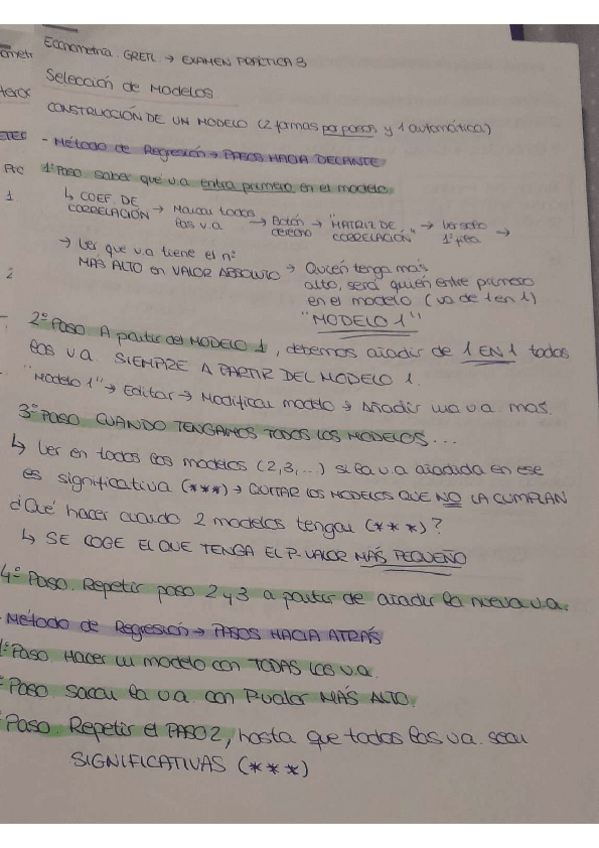 Econometría. GRETL → EXAMEN PRÁCTICA 3
Selección de Modelos
CONSTRUCCIÓN DE UN MODELO (2 formas por pasos y 1 automática)
- Método de Regresión → PASOS HACIA DELANTE
1º Paso. Saber que v.a entra primero en el modelo.
↳ COEF. DE CORRELACIÓN → Marcar todos las v.a → Botón derecho → "MATRIZ DE CORRELACIÓN" → Ver solo 1ª fila →
→ Ver que v.a tiene el nº MÁS ALTO en VALOR ABSOLUTO → Quien tenga más alto, será quién entre primero en el modelo (va de 1 en 1)
"MODELO 1"
2º Paso. A partir del MODELO 1, debemos añadir de 1 EN 1 todas
las v.a SIEMPRE A PARTIR DEL MODELO 1.
"Modelo 1" → Editar → Modificar modelo → Añadir una v.a. mas.
3º PASO. CUANDO TENGAMOS TODOS LOS MODELOS...
↳ Ver en todos los modelos (2,3,...) si la v.a añadida en ese
es significativa (***) → QUITAR LOS MODELOS QUE NO LA CUMPLAN
¿Qué hacer cuando 2 modelos tengan (***)?
↳ SE COGE EL QUE TENGA EL P-VALOR MÁS PEQUEÑO
4º Paso. Repetir paso 2 y 3 a partir de añadir la nueva v.a.
Método de Regresión → PASOS HACIA ATRÁS
1º Paso. Hacer un modelo con TODAS LOS v.a.
º Paso. Sacar la v.a. con P.valor MÁS ALTO.
º Paso. Repetir el PASO 2, hasta que todos las v.a. sean
SIGNIFICATIVAS (***)